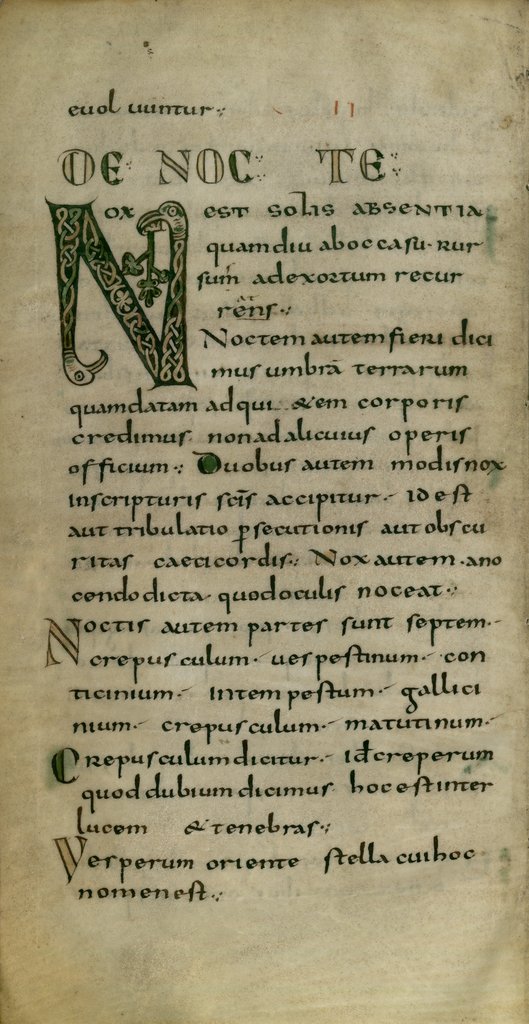 euoluuntur
II
DE NOCTE
NOX EST SOLIS ABSENTIA
quamdiu aboccasu rur
sum adexortum recur
rens
Noctem autem fieri dici
mus umbrā terrarum
quamdatam adqui&em corporis
credimus non ad alicuius operis
officium Duobus autem modis nox
inscripturis scīs accipitur id est
aut tribulatio ꝑsecutionis aut obscu
ritas caeci cordis Nox autem ano
cendo dicta quod oculis noceat
Noctis autem partes sunt septem
crepusculum uespestinum con
ticinium intempestum gallici
nium crepusculum matutinum
Crepusculum dicitur Id creperum
quod dubium dicimus hoc est inter
lucem & tenebras
Vesperum oriente stella cui hoc
nomen est